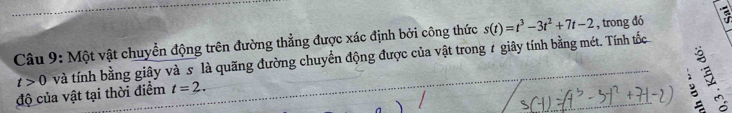 Câu 9: Một vật chuyển động trên đường thẳng được xác định bởi công thức s(t)=t³−3t²+7t−2, trong đó
t>0 và tính bằng giây và s là quãng đường chuyển động được của vật trong t giây tính bằng mét. Tính tốc
độ của vật tại thời điểm t=2.
Sai
0,3. Khi đó: